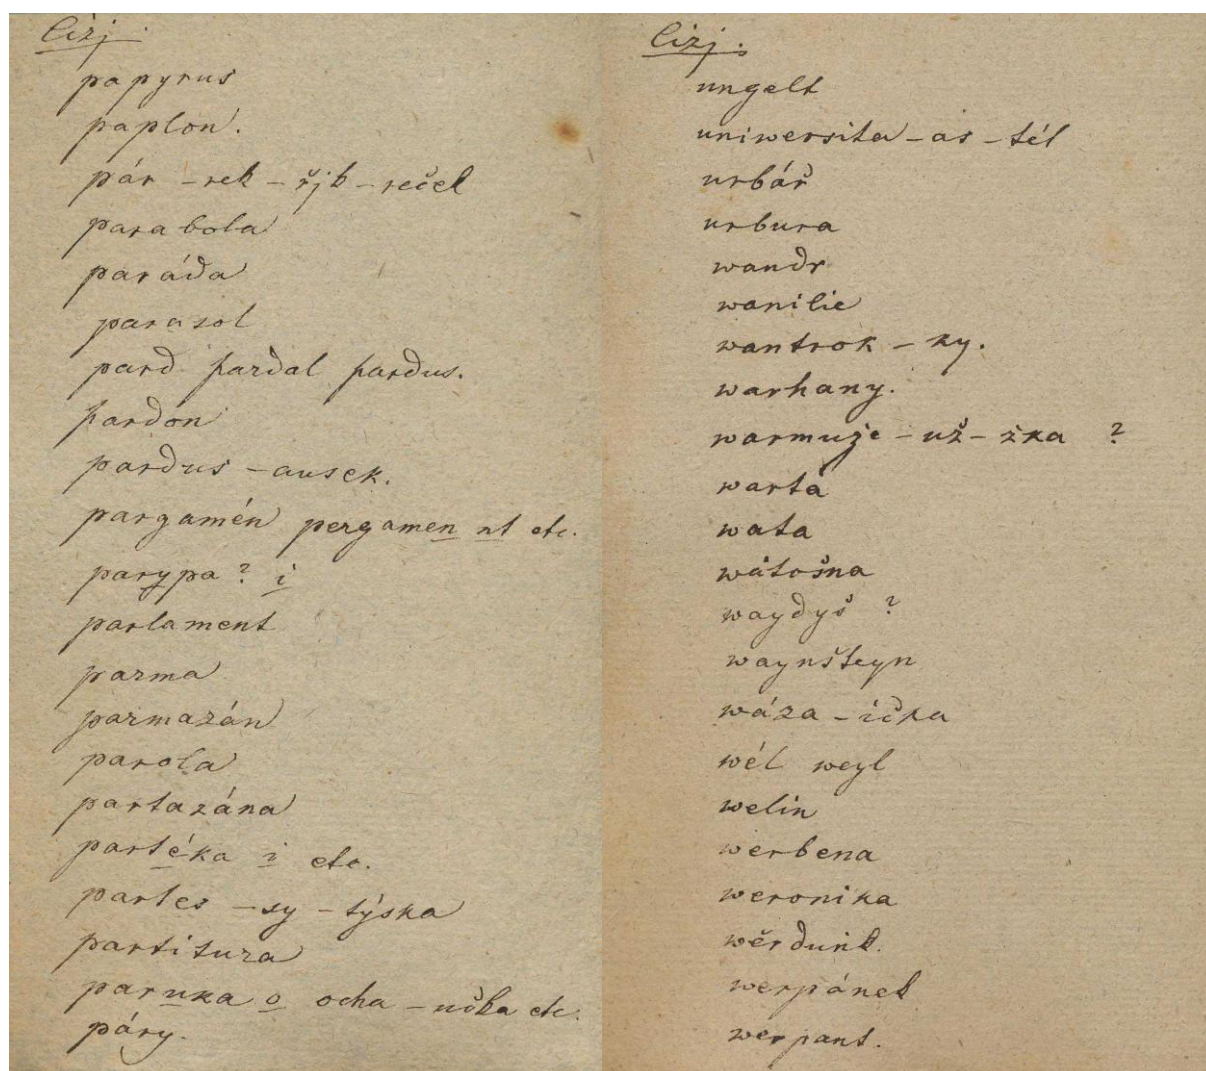 Cizj.
papyrus
paplon.
pár – rek – řjk – reček
parabola
paráda
parasol
pard pardal pardus.
pardon
pardus – ausek.
pargamén pergamen nt etc.
parypa? i
parlament
parma
parmazán
parola
partazána
partéka i etc.
partes – sy – týska
partitura
paruka o ocha – učka etc.
páry.
Cizj.
ungelt
uniwersita – as – tél
urbář
urbura
wandr
wanilie
wantrok – ky.
warhany.
warmuže – už – žka ?
warta
wata
wátošna
waydyš ?
waynšteyn
wáza – ička
wél weyl
welin
werbena
weronika
wěrdunk.
werpánek
werpant.